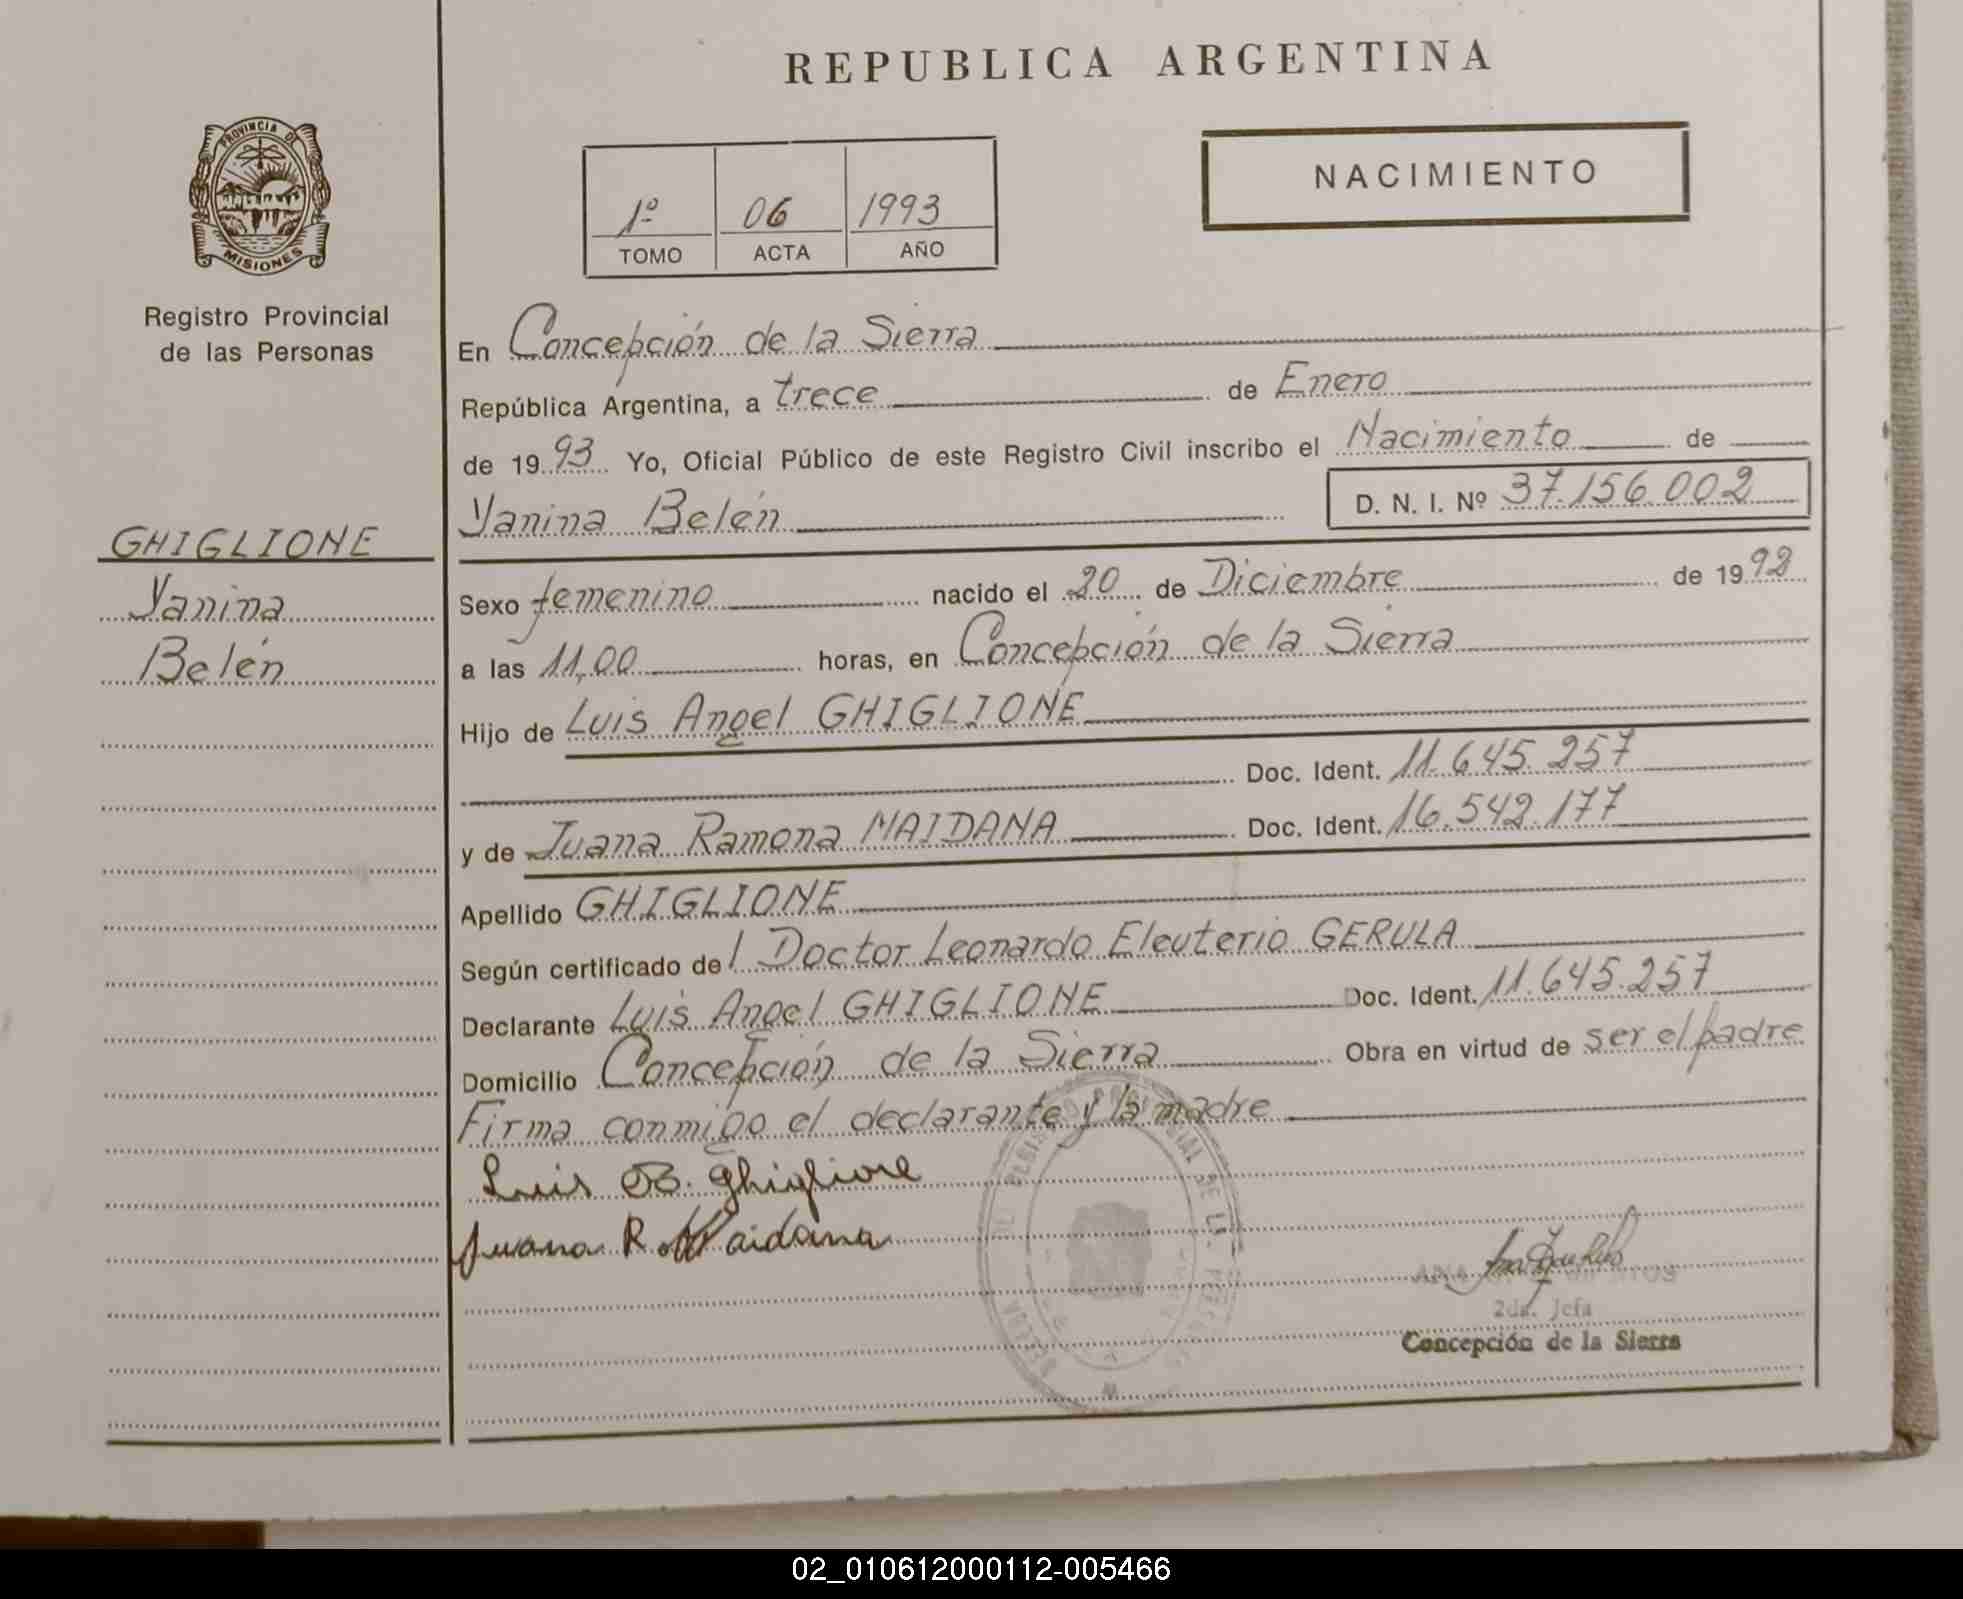 REPUBLICA ARGENTINA
PROVINCIA DE
MISIONES
Registro Provincial
de las Personas
NACIMIENTO
1º 06 1993
TOMO ACTA AÑO
GHIGLIONE
Yanina
Belén
En Concepción de la Sierra
República Argentina, a trece de Enero
de 1993 Yo, Oficial Público de este Registro Civil inscribo el Nacimiento de
Yanina Belén D. N. I. Nº 37.156.002
Sexo femenino nacido el 20 de Diciembre de 1992
a las 11,00 horas, en Concepción de la Sierra
Hijo de Luis Angel GHIGLIONE
Doc. Ident. 11.645.257
y de Juana Ramona MAIDANA Doc. Ident. 16.542.177
Apellido GHIGLIONE
Según certificado del Doctor Leonardo Eleuterio GERULA
Declarante Luis Angel GHIGLIONE Doc. Ident. 11.645.257
Domicilio Concepción de la Sierra Obra en virtud de ser el padre
Firma conmigo el declarante y la madre
Luis Ghiglione
Juana R. Maidana
ANA
2da. Jefa
Concepción de la Sierra
02_010612000112-005466